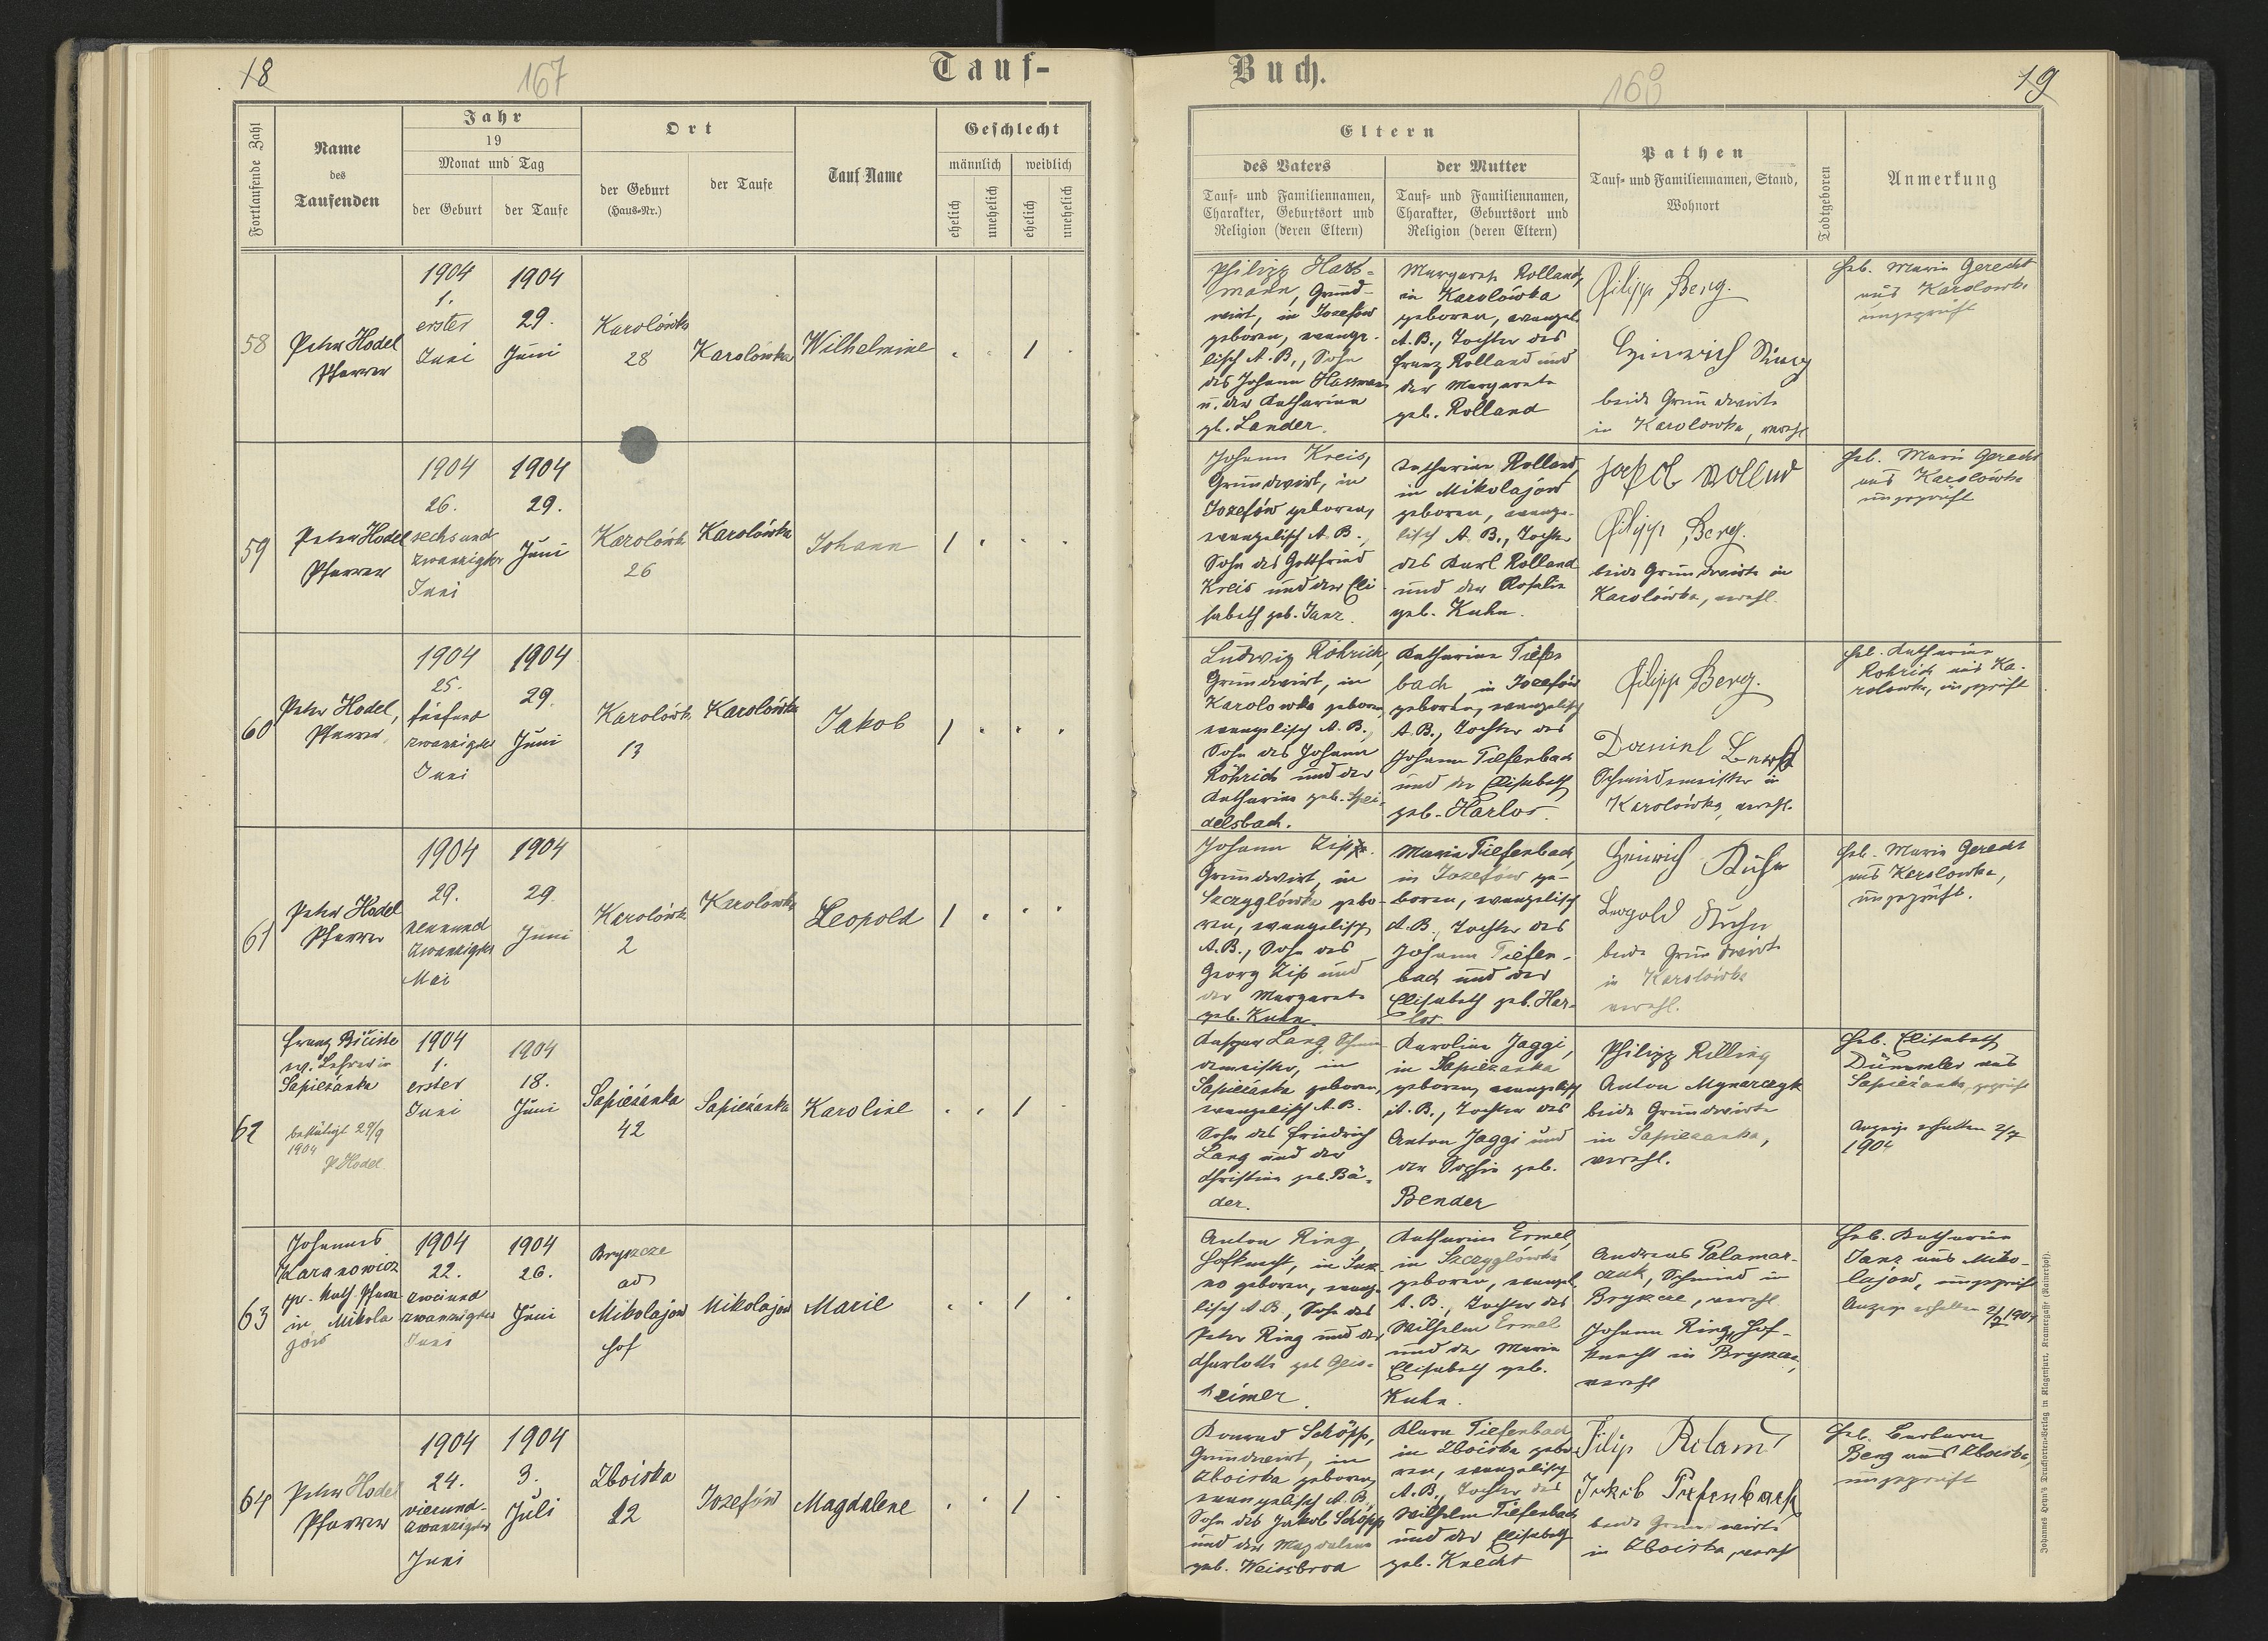 18
167
Tauf-
Fortlaufende Zahl
Name
des
Taufenden
Jahr
19
Monat und Tag
der Geburt
der Taufe
Ort
der Geburt
(Haus-Nr.)
der Taufe
Tauf-Name
Geschlecht
männlich
weiblich
ehelich
unehelich
ehelich
unehelich
58
Peter Hodel
Pfarrer
1904
1.
erster
Juni
1904
29.
Juni
Karolówka
28
Karolówka
Wilhelmine
. . 1 .
59
Peter Hodel
Pfarrer
1904
26.
sechsund
zwanzigster
Juni
1904
29.
Juni
Karolówka
26
Karolówka
Johann
1 . . .
60
Peter Hodel,
Pfarrer
1904
25.
fünfund
zwanzigster
Juni
1904
29.
Juni
Karolówka
13
Karolówka
Jakob
1 . . .
61
Peter Hodel
Pfarrer
1904
29.
neunund
zwanzigster
Mai
1904
29.
Juni
Karolówka
2
Karolówka
Leopold
1 . . .
62
Franz
ev. Lehrer in
Sapieżanka
bestätigt 29/9
1904
P. Hodel
1904
1.
erster
Juni
1904
18.
Juni
Sapieżanka
42
Sapieżanka
Karoline
. . 1 .
63
Johannes
Karanowicz
gr. kath. Pfarrer
in Mikola
jów
1904
22.
zweiund
zwanzigster
Juni
1904
26.
Juni
Brykcze
ad
Mikolajow
Hof
Mikolajow
Marie
. . 1 .
64
Peter Hodel
Pfarrer
1904
24.
vierund-
zwanzigster
Juni
1904
3.
Juli
Zboiska
12
Jozefów
Magdalene
. . 1 .
Buch.
168
19
Eltern
des Vaters
der Mutter
Tauf- und Familiennamen,
Charakter, Geburtsort und
Religion (deren Eltern)
Tauf- und Familiennamen,
Charakter, Geburtsort und
Religion (deren Eltern)
Pathen
Tauf- und Familiennamen, Stand,
Wohnort
Todtgeboren
Anmerkung
Philipp Hass-
mann, Grund-
wirt, in Jozefow
geboren, evange-
lisch A. B., Sohn
des Johann Hassmann
u. der Katharina
gb. Lander.
Margareth Rolland,
in Karolówka
geboren, evangel.
A. B., Tochter des
Franz Rolland und
der Margarete
geb. Rolland
Filipp Berg.
Heinrich
beide Grundwirte
in Karolowka, verehl.
Heb. Maria Gerecht
aus Karolowka
ungeprüft
Johann Kreis,
Grundwirt, in
Jozefów geboren,
evangelisch A. B.,
Sohn des Gottfried
Kreis und der Eli
sabeth geb. Janz.
Katharina Rolland,
in Mikolajow
geboren, evange-
lisch A. B., Tochter
des Karl Rolland
und der Rosalie
geb. Kuhn.
Jakob Rollnd
Filipp Berg.
beide Grundwirte in
Karolówka, verehl.
Heb. Marie Gerecht
aus Karolówka
ungeprüft
Ludwig Röhrich,
Grundwirt, in
Karolowka geboren,
evangelisch A. B.,
Sohn des Johann
Röhrich und der
Katharina geb. Spei-
delsbach.
Katharina Tiefen
bach, in Jozefów
geboren, evangelisch
A. B., Tochter des
Johann Tiefenbach
und der Elisabeth
geb. Harlos.
Filipp Berg.
Daniel
Schmiedemeister in
Karolówka, verehl.
Heb. Katharina
Röhrich aus Ka-
rolowka, ungeprüft
Johann Zipp.
Grundwirt, in
Szczyglówka gebo-
ren, evangelisch
A. B., Sohn des
Georg Zip und
der Margarete
geb. Kuhn.
Maria Tiefenbach,
in Jozefów ge-
boren, evangelisch
A. B., Tochter des
Johann Tiefen-
bach und der
Elisabeth geb. Har-
los.
Heinrich Kuhn
Leopold Kuhn
beide Grundwirte
in Karolówka
verehl.
Heb. Marie Gerecht
aus Karolowka,
ungeprüft.
Kaspar Lang, Schmie-
demeister, in
Sapieżanka geboren,
evangelisch A. B.
Sohn des Friedrich
Lang und der
Christine geb. Bä-
der.
Karoline Jaggi,
in Sapieżanka
geboren, evangelisch
A. B., Tochter des
Anton Jaggi und
der Sophie geb.
Bender
Philipp Rilling
Anton Mynarczyk
beide Grundwirte
in Sapiezanka,
verehl.
Heb. Elisabeth
Dümmler aus
Sapieżanka, geprüft
Anzeige erhalten 2/7
1904
Anton Ring,
Hofknecht, in
geboren, evange-
lisch A. B., Sohn des
Peter Ring und der
Charlotte geb. Geis-
heimer.
Katharina Ermel,
in Szczyglówka
geboren, evangel.
A. B., Tochter des
Wilhelm Ermel
und der Maria
Elisabeth geb.
Kuhn.
Andreas Palamar-
czuk, Schmied in
Brykcze, verehl
Johann Ring, Hof-
knecht in Brykcze,
verehl
Heb. Katharina
Janz aus Miko-
lajow, ungeprüft
Anzeige erhalten 2/7 1904
Konrad Schöpp,
Grundwirt, in
Zboiska geboren,
evangelisch A. B.,
Sohn des Jakob Schöpp
und der Magdalena
geb. Weissbrod
Klara Tiefenbach,
in Zboiska gebo
ren, evangelisch
A. B., Tochter des
Wilhelm Tiefenbach
und der Elisabeth
geb. Knecht
Filip Roland
Jakob Tiefenbach
beide Grundwirte
in Zboiska, verehl
Heb. Barbara
Berg aus Zboiska,
ungeprüft
Johannes Heyn's Drucksorten-Verlag in Klagenfurt, Kramergasse (Mainerhof).